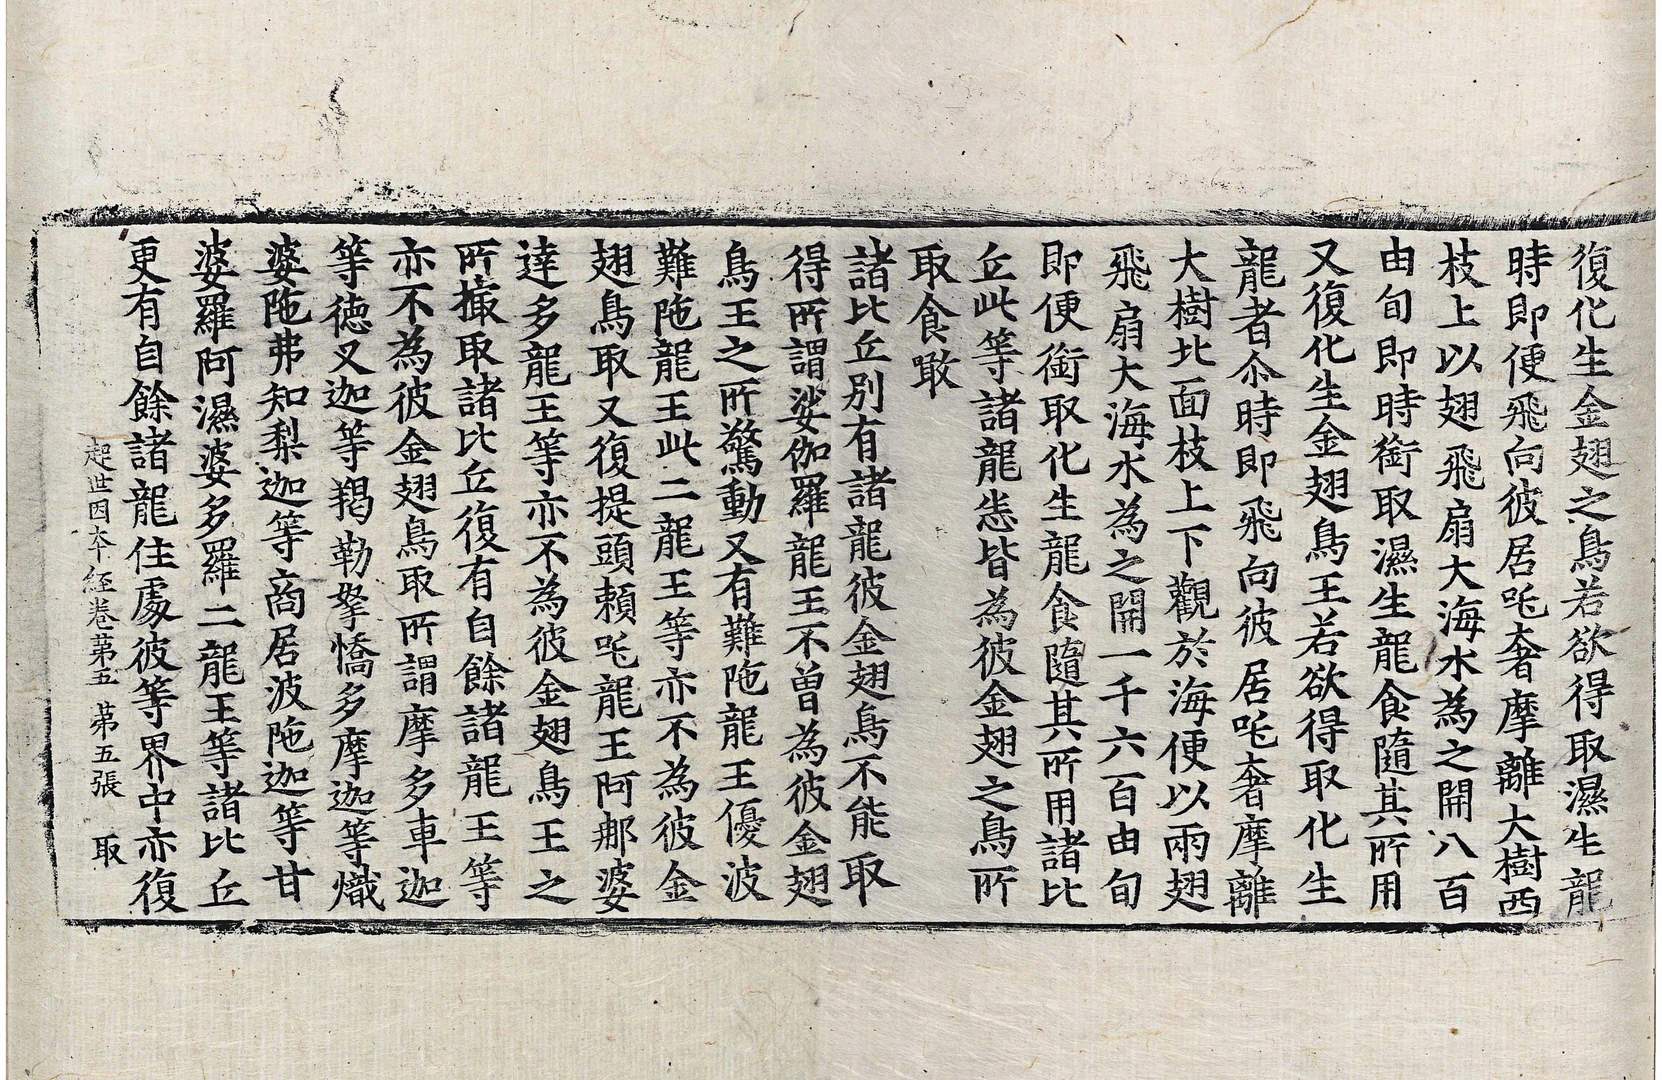 復化生金翅之鳥若欲得取濕生龍
時即便飛向彼居吒奢摩離大樹西
枝上以翅飛扇大海水為之開八百
由旬即時銜取濕生龍食隨其所用
又復化生金翅鳥王若欲得取化生
龍者尒時即飛向彼居吒奢摩離
大樹北面枝上下觀於海便以兩翅
飛扇大海水為之開一千六百由旬
即便銜取化生龍食隨其所用諸比
丘此等諸龍悉皆為彼金翅之鳥所
取食噉
諸比丘別有諸龍彼金翅鳥不能取
得所謂娑伽羅龍王不曾為彼金翅
鳥王之所驚動又有難陁龍王優波
難陁龍王此二龍王等亦不為彼金
翅鳥取又復提頭頼吒龍王阿那婆
達多龍王等亦不為彼金翅鳥王之
所撮取諸比丘復有自餘諸龍王等
亦不為彼金翅鳥取所謂摩多車迦
等德叉迦等羯勒拏憍多摩迦等熾
婆陁弗知梨迦等商居波陁迦等甘
婆羅阿濕婆多羅二龍王等諸比丘
更有自餘諸龍住處彼等界中亦復
起世因本經卷苐五 苐五張 取